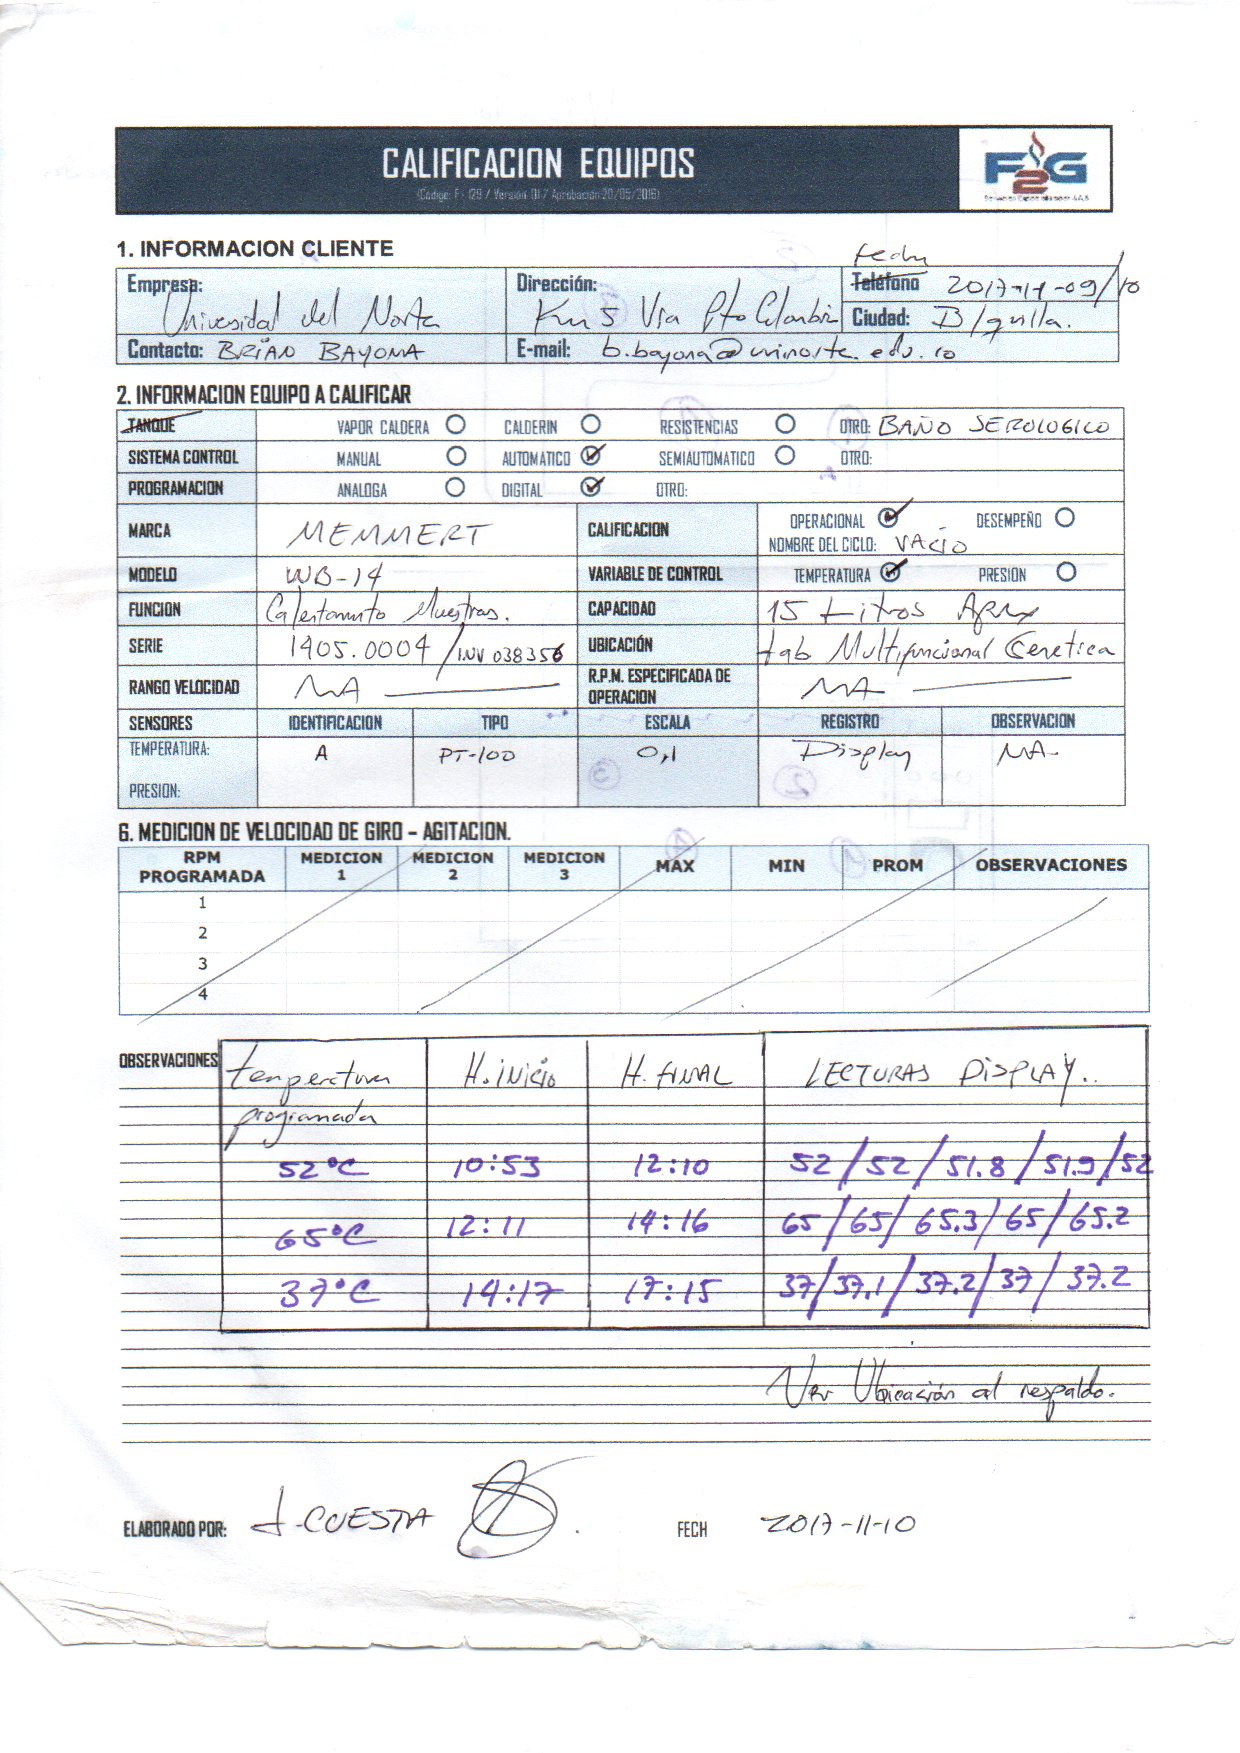 CALIFICACION EQUIPOS
(Código: F-129 / Version 01 / Aprobacion 20/05/2016)
F2G
1. INFORMACION CLIENTE
fecha
Empresa: Dirección: Teléfono 2017-11-09/10
Universidad del Norte Km 5 Via Pto Colombia Ciudad: B/quilla.
Contacto: BRIAN BAYONA E-mail: b.bayona@uninorte.edu.co
2. INFORMACION EQUIPO A CALIFICAR
TANQUE VAPOR CALDERA CALDERIN RESISTENCIAS OTRO: BAÑO SEROLOGICO
SISTEMA CONTROL MANUAL AUTOMATICO SEMIAUTOMATICO OTRO:
PROGRAMACION ANALOGA DIGITAL OTRO:
MARCA MEMMERT CALIFICACION OPERACIONAL DESEMPEÑO
NOMBRE DEL CICLO: VACIO
MODELO WB-14 VARIABLE DE CONTROL TEMPERATURA PRESION
FUNCION Calentamiento Muestras. CAPACIDAD 15 Litros Aprox
SERIE 1405.0004 / INV 038356 UBICACIÓN Lab Multifuncional Genetica
RANGO VELOCIDAD NA R.P.M. ESPECIFICADA DE OPERACION NA
SENSORES IDENTIFICACION TIPO ESCALA REGISTRO OBSERVACION
TEMPERATURA: A PT-100 0,1 Display NA
PRESION:
6. MEDICION DE VELOCIDAD DE GIRO – AGITACION.
RPM PROGRAMADA MEDICION 1 MEDICION 2 MEDICION 3 MAX MIN PROM OBSERVACIONES
1
2
3
4
OBSERVACIONES temperatura H. inicio H. FINAL LECTURAS DISPLAY..
programada
52°C 10:53 12:10 52/52/51.8/51.9/52
65°C 12:11 14:16 65/65/65.3/65/65.2
37°C 14:17 17:15 37/37.1/37.2/37/37.2
Ver Ubicación al respaldo.
ELABORADO POR: J. CUESTA FECH 2017-11-10